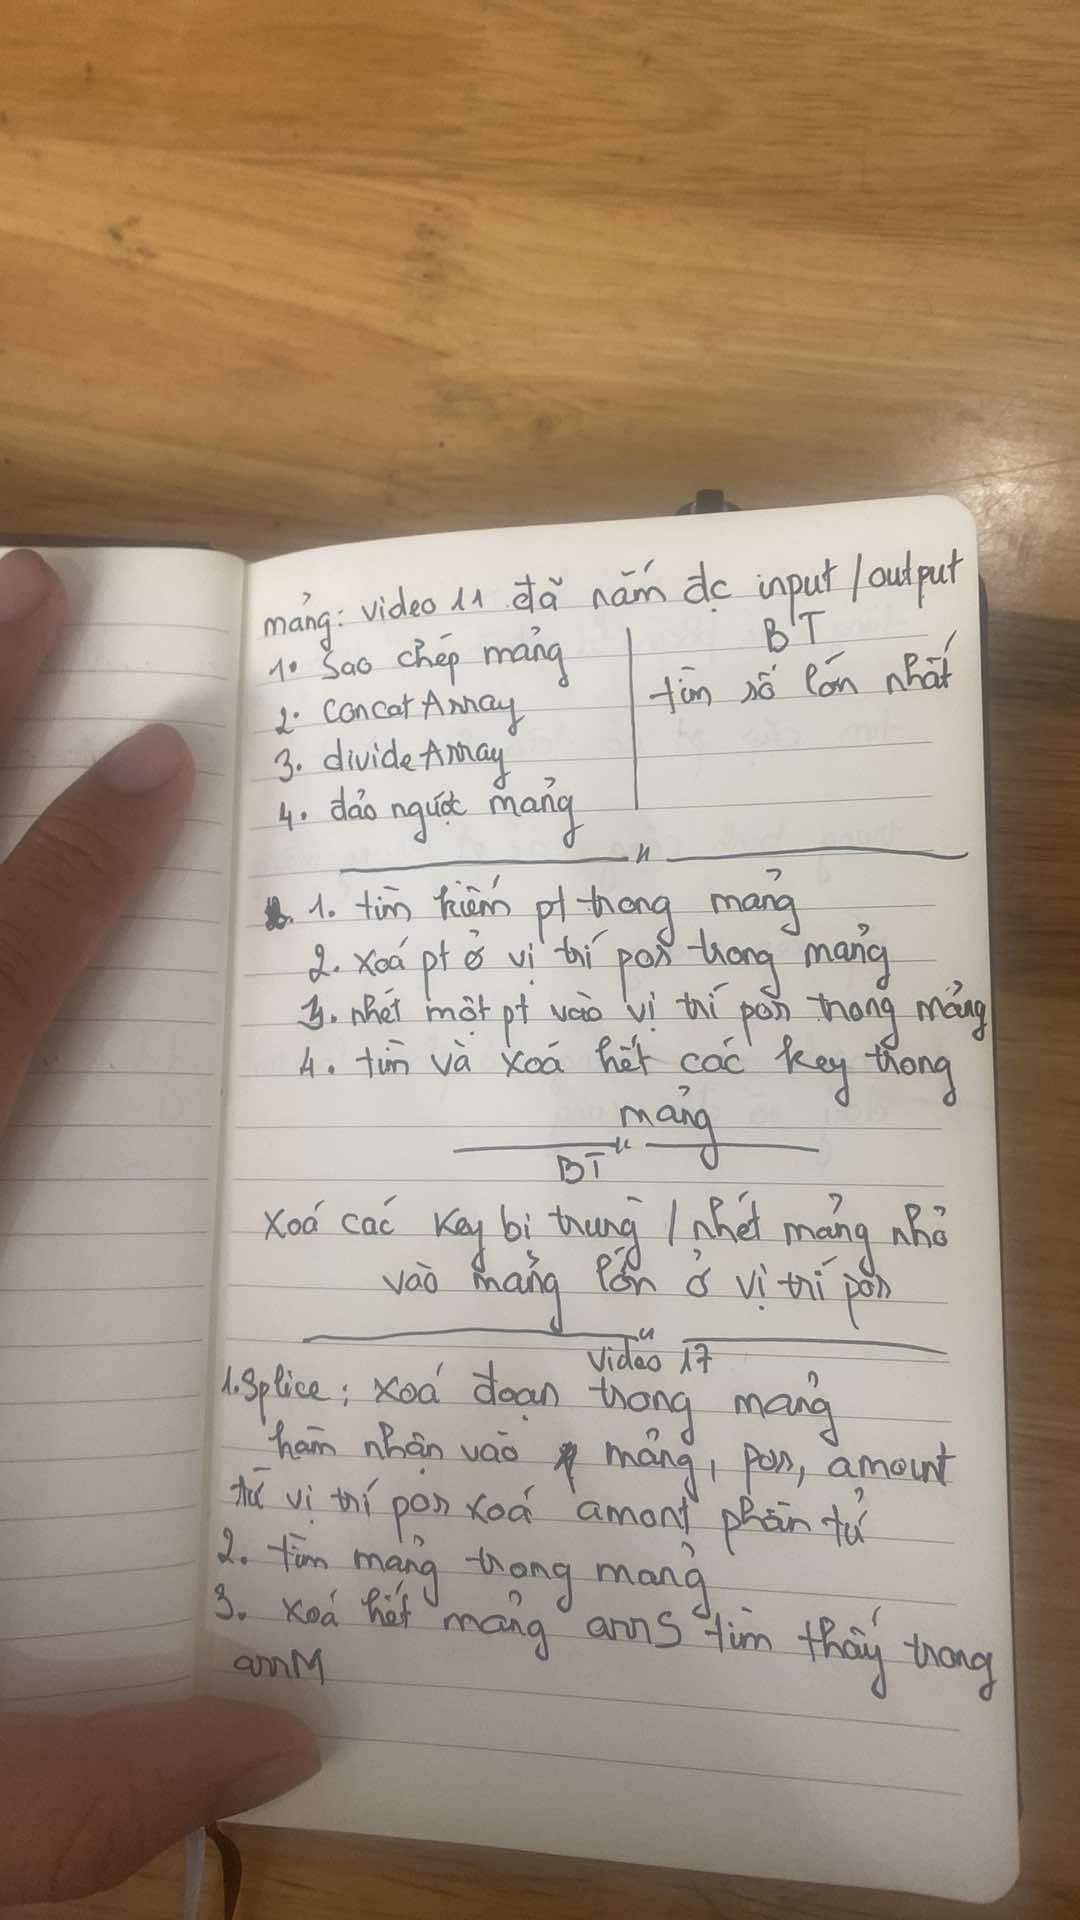 mảng: video 11 đã nắm đc input / output
1. Sao chép mảng
2. concat Array
3. divide Array
4. đảo ngược mảng
BT
tìm số lớn nhất
1. tìm kiếm pt trong mảng
2. xoá pt ở vị trí pos trong mảng
3. nhét một pt vào vị trí pos trong mảng
4. tìm và xoá hết các key trong
mảng
BT
xoá các key bị trùng / nhét mảng nhỏ
vào mảng lớn ở vị trí pos
video 17
1. Splice; xoá đoạn trong mảng
hàm nhận vào mảng, pos, amount
từ vị trí pos xoá amont phần tử
2. tìm mảng trong mảng
3. xoá hết mảng arrS tìm thấy trong
arrM